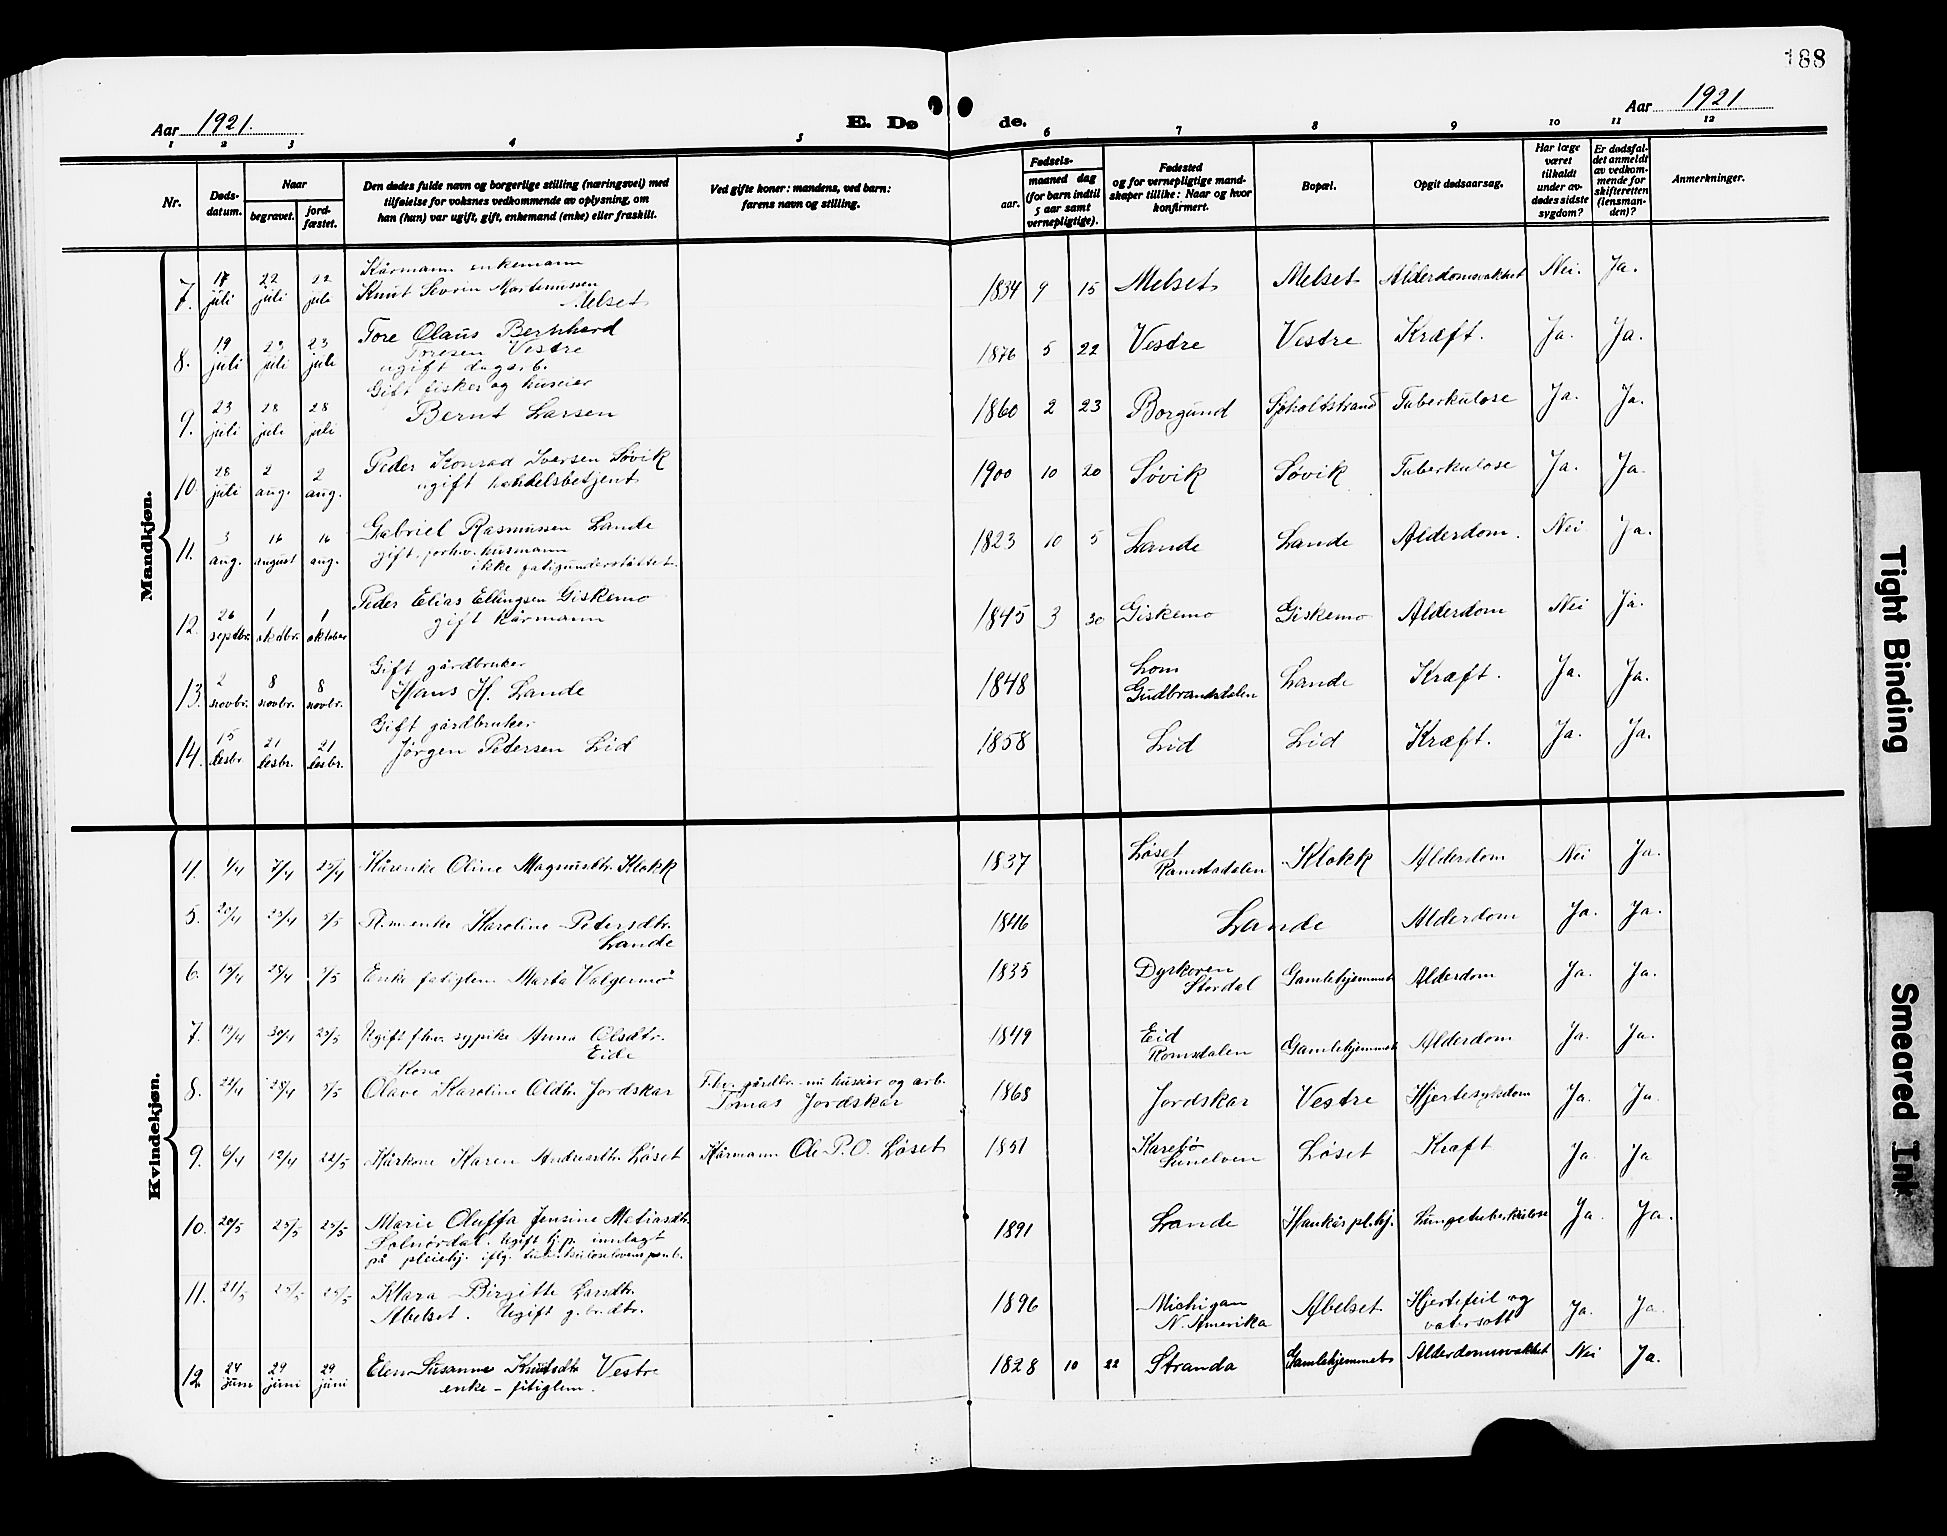 188
Aar 1921.
E. Dø
de.
Aar 1921
1 2 3 4 5 6 7 8 9 10 11 12
Nr.
Døds-
datum.
Naar
begravet.
jord-
fæstet.
Den dødes fulde navn og borgerlige stilling (næringsvei) med
tilføielse for voksnes vedkommende av oplysning, om
han (hun) var ugift, gift, enkemand (enke) eller fraskilt.
Ved gifte koner: mandens, ved barn:
farens navn og stilling.
Fødsels-
aar.
maaned dag
(for barn indtil
5 aar samt
vernepligtige).
Fødested
og for vernepligtige mand-
skaper tillike: Naar og hvor
konfirmert.
Bopæl.
Opgit dødsaarsag.
Har læge
været
tilkaldt
under av-
dødes sidste
sygdom?
Er dødsfal-
det anmeldt
av vedkom-
mende for
skifteretten
(lensman-
den)?
Anmerkninger.
Mandkjøn.
7. juli 22 juli juli Kårmann enkemann
Knut Sevrin Martinussen
Melset
1834 9 15 Melset Melset Alderdomsvakhet Nei. Ja.
8. 19 juli 23 juli 23 juli Tore Olaus Bernhard
Toresen Vestre
ugift dagarb.
1876 5 22 Vestre Vestre Kræft. Ja. Ja.
9. 23 juli 28 juli 28 juli Gift fisker og huseier
Bernt Larsen
1860 2 23 Borgund Sjøholtstrand Tuberkulose Ja. Ja.
10. 28 juli 2 aug. 2 aug. Peder Konrad Iversen Søvik
ugift handelsbetjent
1900 10 20 Søvik Søvik Tuberkulose Ja. Ja.
11. 3 aug. 16 august 16 aug. Gabriel Rasmussen Lande
gift forhv. husmann
ikke fatigunderstøttet.
1823 10 5 Lande Lande Alderdom. Nei Ja.
12. 26 septbr. 1 oktbr. 1 oktober Peder Elias Ellingsen Giskemo
gift kårmann
1845 3 30 Giskemo Giskemo Alderdom Nei Ja.
13. 2 novbr. 8 novbr. 8 novbr. Gift gårdbruker
Hans H. Lande
1848 Lom
Gudbrandsdalen Lande Kræft. Ja. Ja.
14. 15 desbr 21 desbr. 21 desbr. Gift gårdbruker
Jørgen Petersen Lid
1858 Lid Lid Kræft. Ja. Ja.
Kvindekjøn.
4. 1/4 7/4 25/4 Kårenke Oline Magnusdtr. Klokk
1837 Løset
Romsdalen Klokk Alderdom Nei Ja.
5. 20/4 25/4 1/5 enke Karoline Petersdtr.
Lande
1846 Lande Alderdom Ja. Ja.
6. 19/4 28/4 1/5 Enke fatiglem Marta Valgermo
1835 Dyrkoren
Stordal Gamlehjemmet Alderdom Ja. Ja.
7. 19/4 30/4 25/5 Ugift fhv. sypike Anna Olsdtr.
Eide
1849 Eid
Romsdalen Gamlehjemmet Alderdom Ja. Ja.
8. 24/4 28/4 1/5 Kone
Olave Karoline Oldtr. Jordskar F.hv. gårdbr. nu huseier og arb.
Tomas Jordskar
1868 Jordskar Vestre Hjertesykdom Ja. Ja.
9. 6/4 12/4 22/5 Kårkone Karen Andreasdtr. Løset Kårmann Ole P.O. Løset
1851 Karebø
Sunelven Løset Kræft Ja. Ja
10. 20/5 25/5 25/5 Marie Oluffa Jensine Matiasdtr.
Solnørdal. Ugift tj.p. innlagt
på pleiehj. iflg. tuberkuloselovens
1891 Lande Haukås pl.hj. Lungetuberkulose Ja. Ja.
11. 21/5 25/5 25/5 Klara Birgitte Larsdtr.
Abelset. Ugift g.br.dtr.
1896 Michigan
N. Amerika Abelset Hjertefeil og
vatersott Ja. Ja.
12 24 juni 29 juni 29 juni Elen Susanne Knutsdtr. Vestre
enke - fatiglem.
1828 10 22 Stranda Gamlehjemmet Alderdomsvakhet Nei Ja.
Tight Binding
Smeared Ink